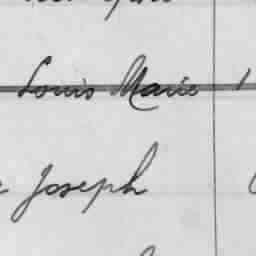 Louis Marie
Joseph